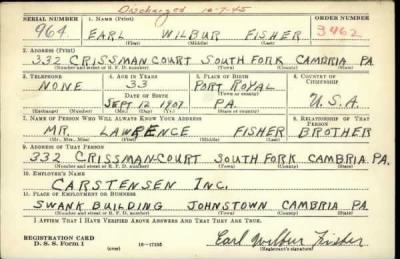 Discharged 10-7-45
SERIAL NUMBER 1. NAME (Print) ORDER NUMBER
964 EARL WILBUR FISHER 3462
(First) (Middle) (Last)
2. ADDRESS (Print)
332 CRISSMAN COURT SOUTH FORK CAMBRIA PA.
(Number and street or R. F. D. number) (Town) (County) (State)
3. TELEPHONE 4. AGE IN YEARS 5. PLACE OF BIRTH 6. COUNTRY OF CITIZENSHIP
NONE 33 PORT ROYAL
DATE OF BIRTH (Town or county)
SEPT 12 1907 PA. U.S.A.
(Exchange) (Number) (Mo.) (Day) (Yr.) (State or country)
7. NAME OF PERSON WHO WILL ALWAYS KNOW YOUR ADDRESS 8. RELATIONSHIP OF THAT PERSON
MR. LAWRENCE FISHER BROTHER
(Mr., Mrs., Miss) (First) (Middle) (Last)
9. ADDRESS OF THAT PERSON
332 CRISSMAN COURT SOUTH FORK CAMBRIA.PA.
(Number and street or R. F. D. number) (Town) (County) (State)
10. EMPLOYER'S NAME
CARSTENSEN INC.
11. PLACE OF EMPLOYMENT OR BUSINESS
SWANK BUILDING JOHNSTOWN CAMBRIA PA.
(Number and street or R. F. D. number) (Town) (County) (State)
I AFFIRM THAT I HAVE VERIFIED ABOVE ANSWERS AND THAT THEY ARE TRUE.
REGISTRATION CARD
D. S. S. Form 1 (over) 16-17105 Earl Wilbur Fisher
(Registrant's signature)